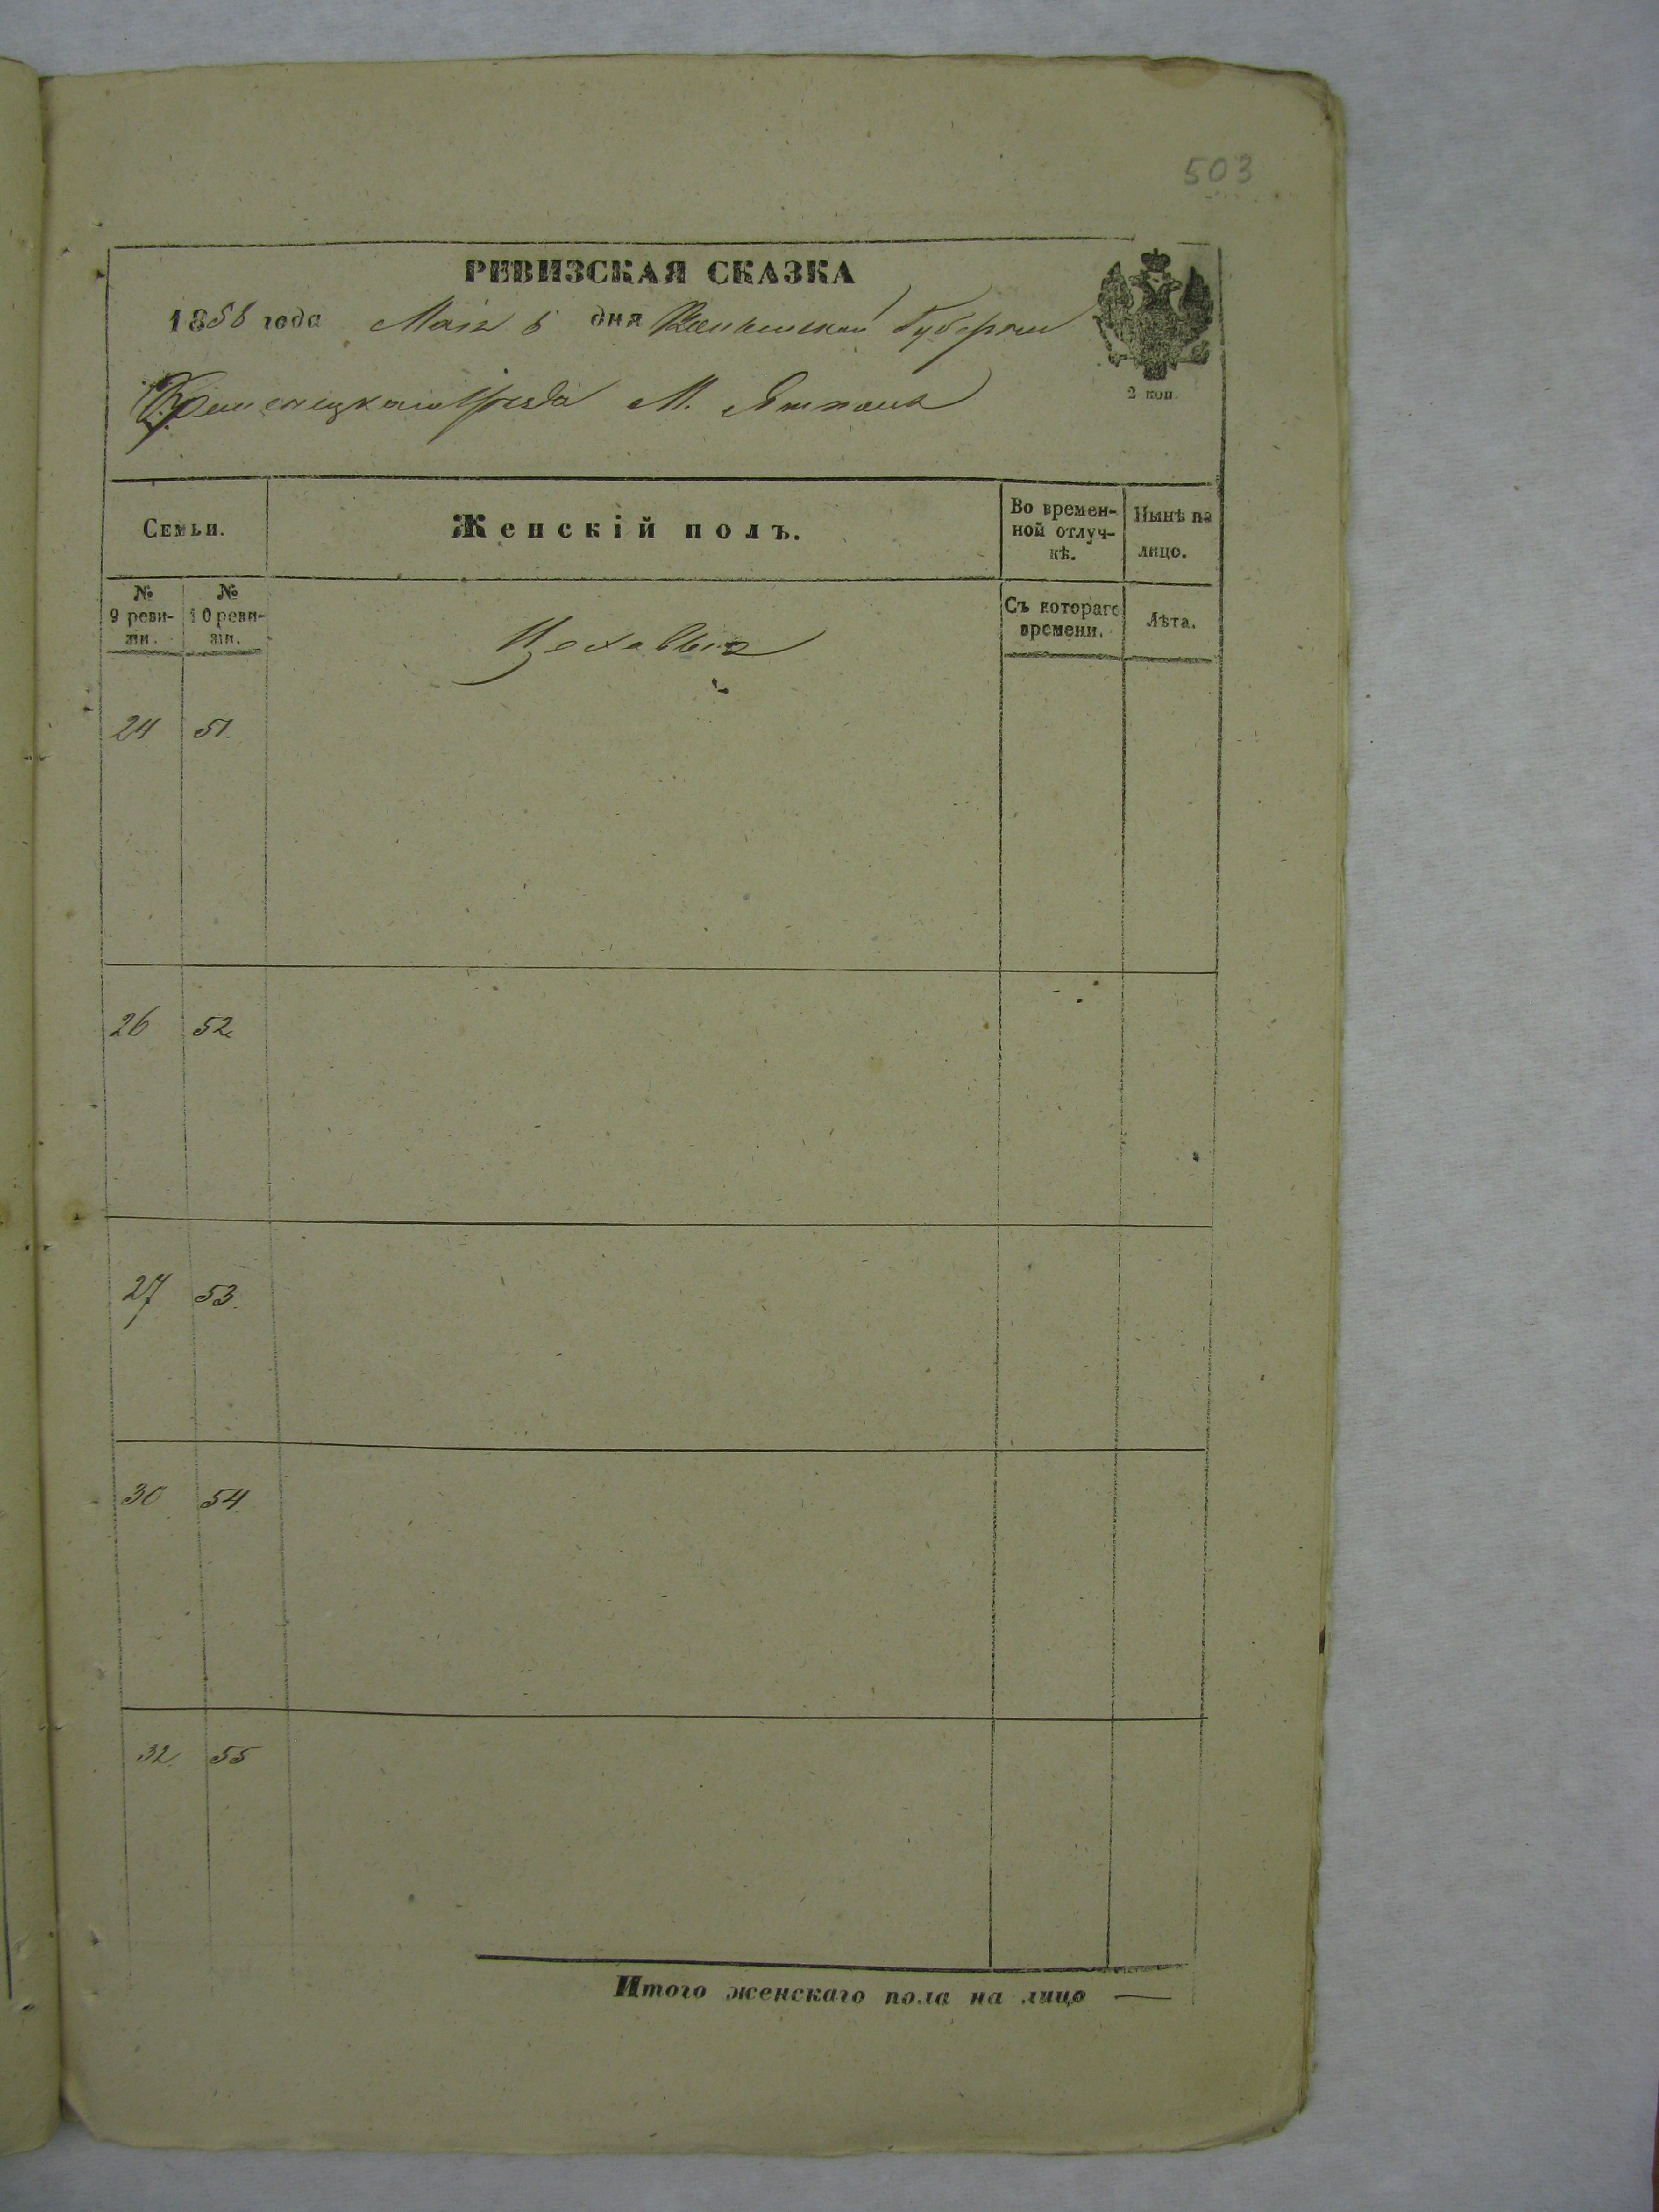 503
РЕВИЗСКАЯ СКАЗКА
1858 года Мая 6 дня Волынской Губернии
Кременецкаго Уезда М. Ямполь
2 коп.
Семьи.
Женскій полъ.
Во времен-
ной отлуч-
кѣ.
Нынѣ на
лицо.
№
9 реви-
зіи.
№
10 реви-
зіи.
Цеховыя
Съ котораго
времени.
Лѣта.
24 51.
26 52.
27 53.
30 54.
32. 55
Итого женскаго пола на лицо —